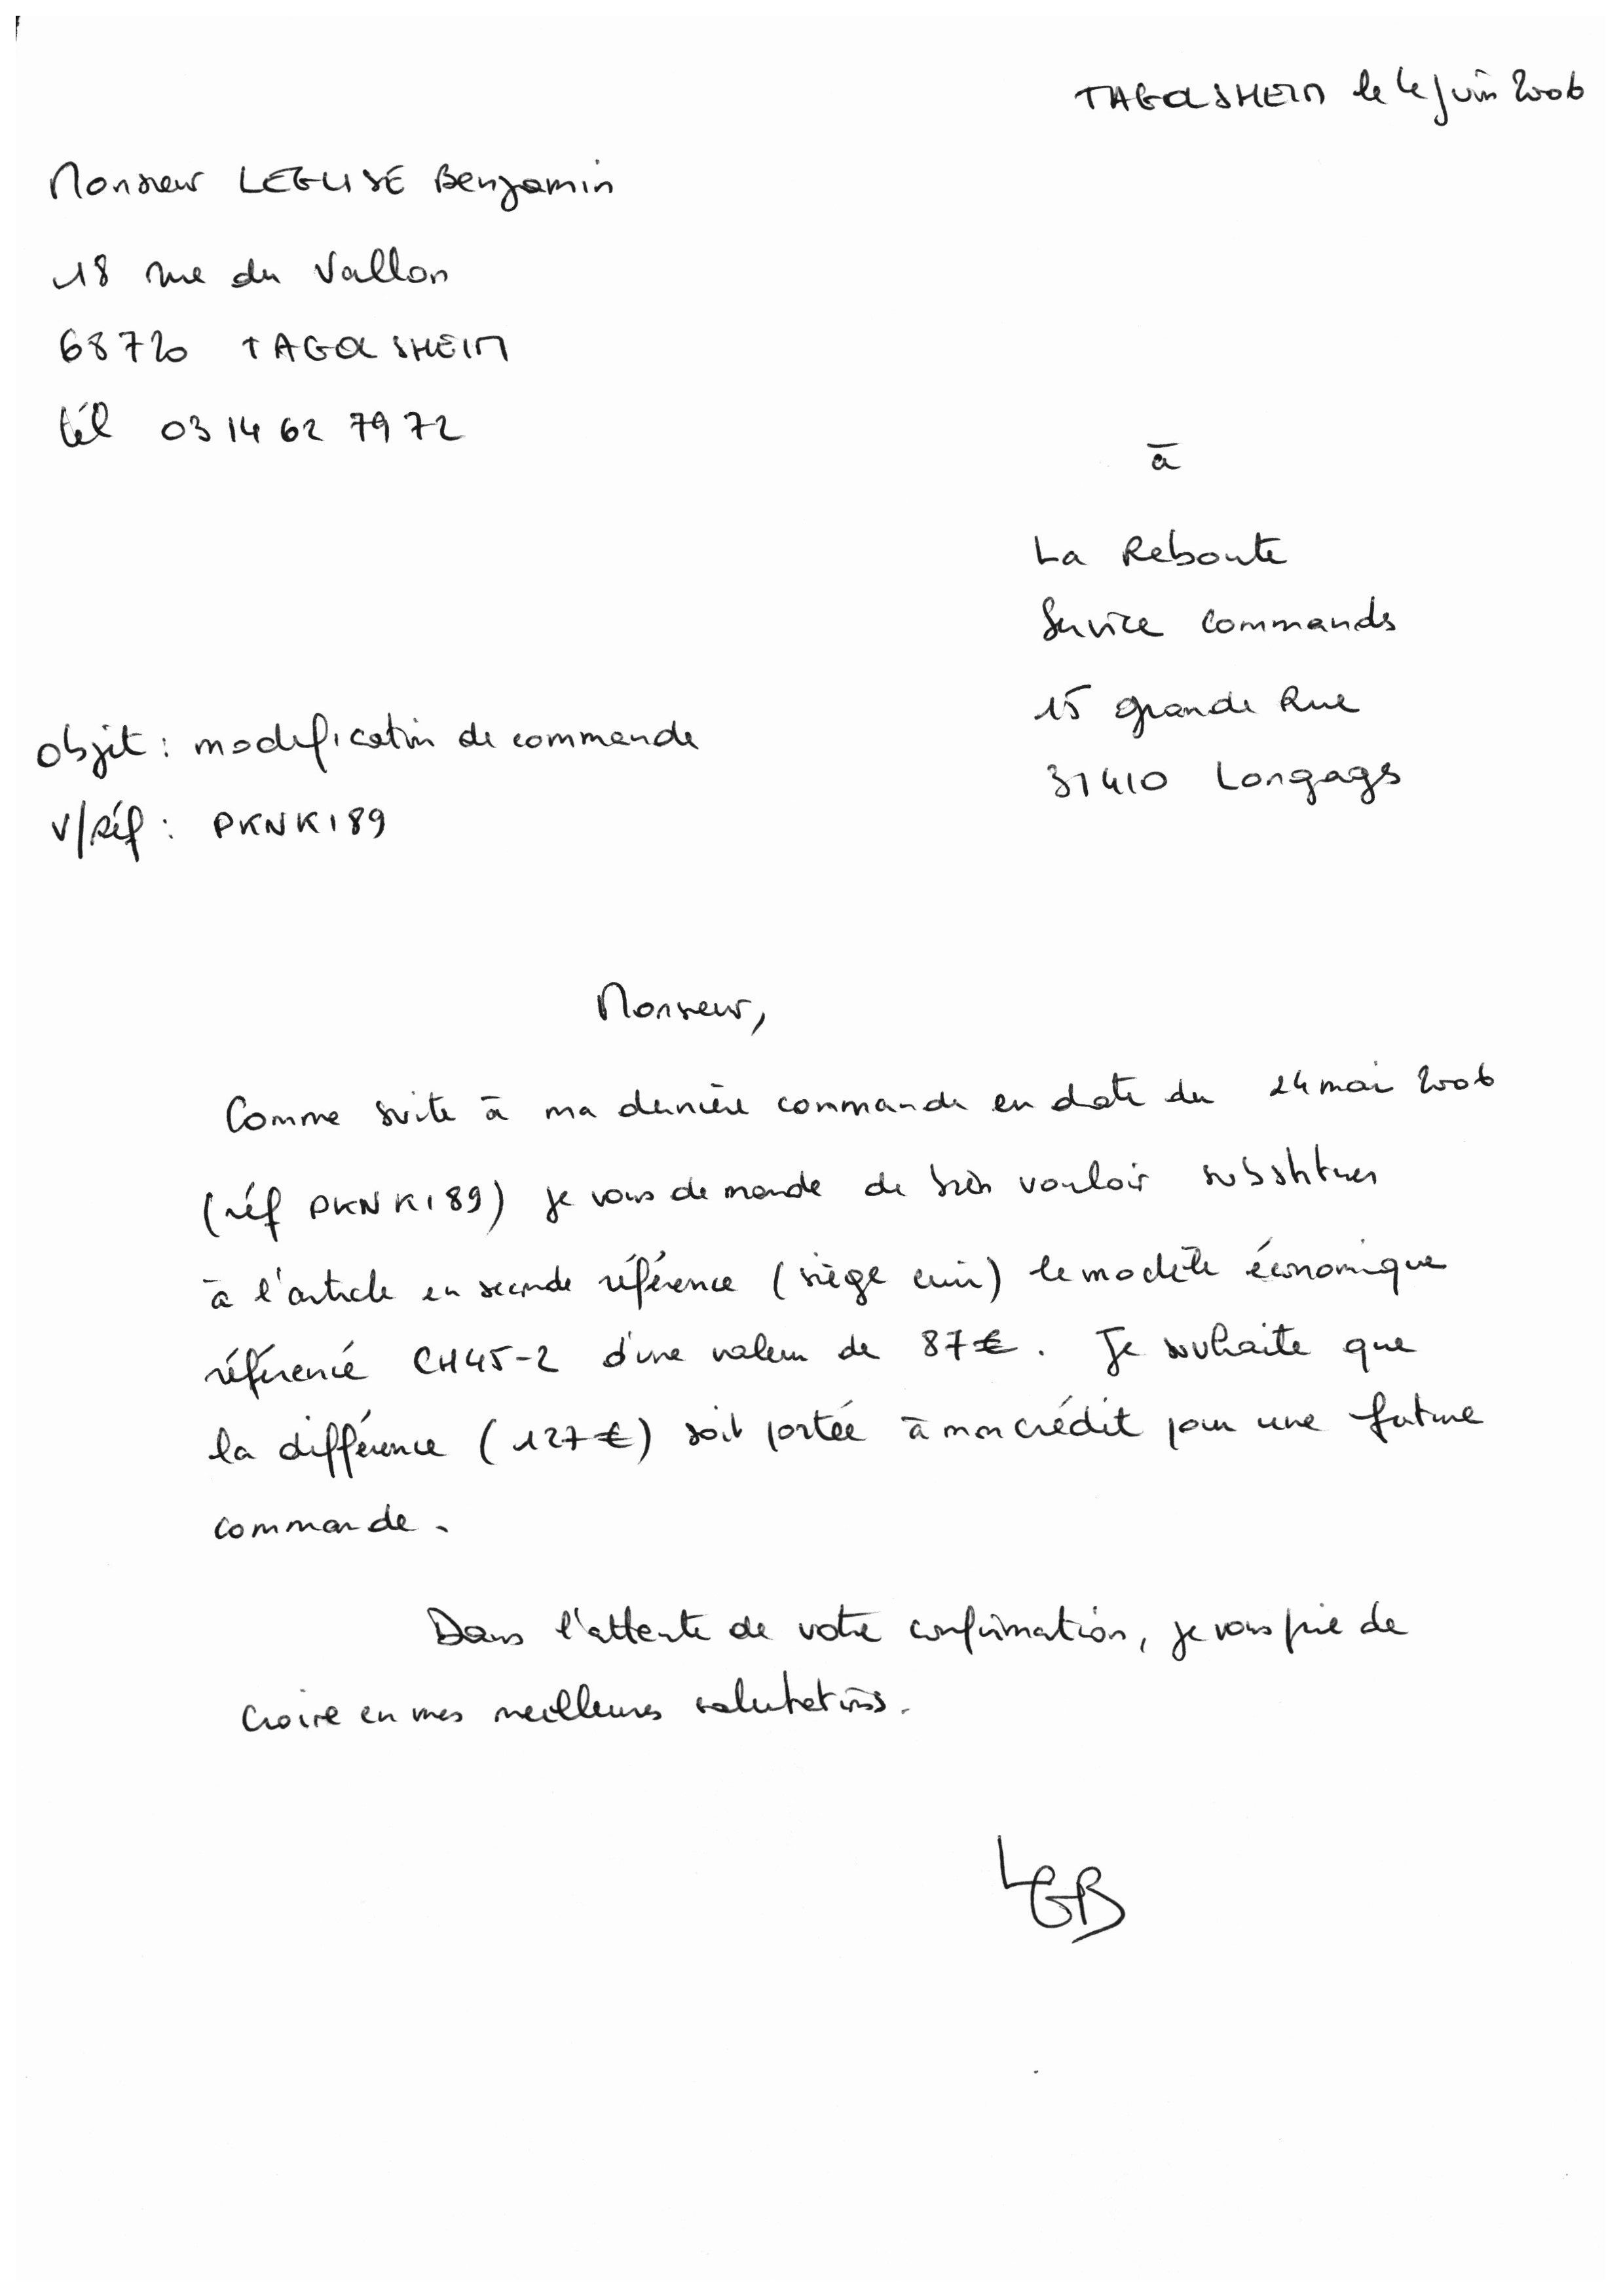 TAGOLSHEIM le 4 juin 2006
Monsieur LEGLISE Benjamin
18 rue du Vallon
68720 TAGOLSHEIM
tél 03 14 62 79 72
à
La Reboute
Service Commandes
15 grande Rue
31410 Longages
Objet : modification de commande
V/Réf : PKNK189
Monsieur,
Comme suite à ma dernière commande en date du 24 mai 2006
(réf PKNK189) je vous demande de bien vouloir substituer
à l'article en seconde référence (siège cuir) le modèle économique
référencé CH45-2 d'une valeur de 87€. Je souhaite que
la différence (127€) soit portée à mon crédit pour une future
commande.
Dans l'attente de votre confirmation, je vous prie de
croire en mes meilleures salutations.
LGB